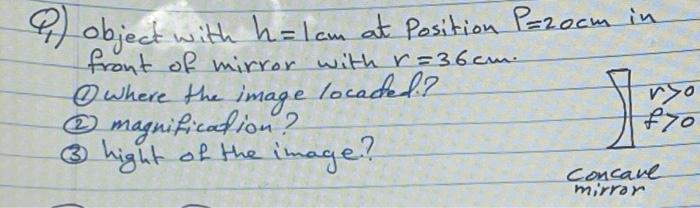 Q1) object with h=1cm at Position P=20cm in
front of mirror with r=36cm.
① where the image locaded?
② magnification?
③ hight of the image?
r>0
f>0
Concave
mirror